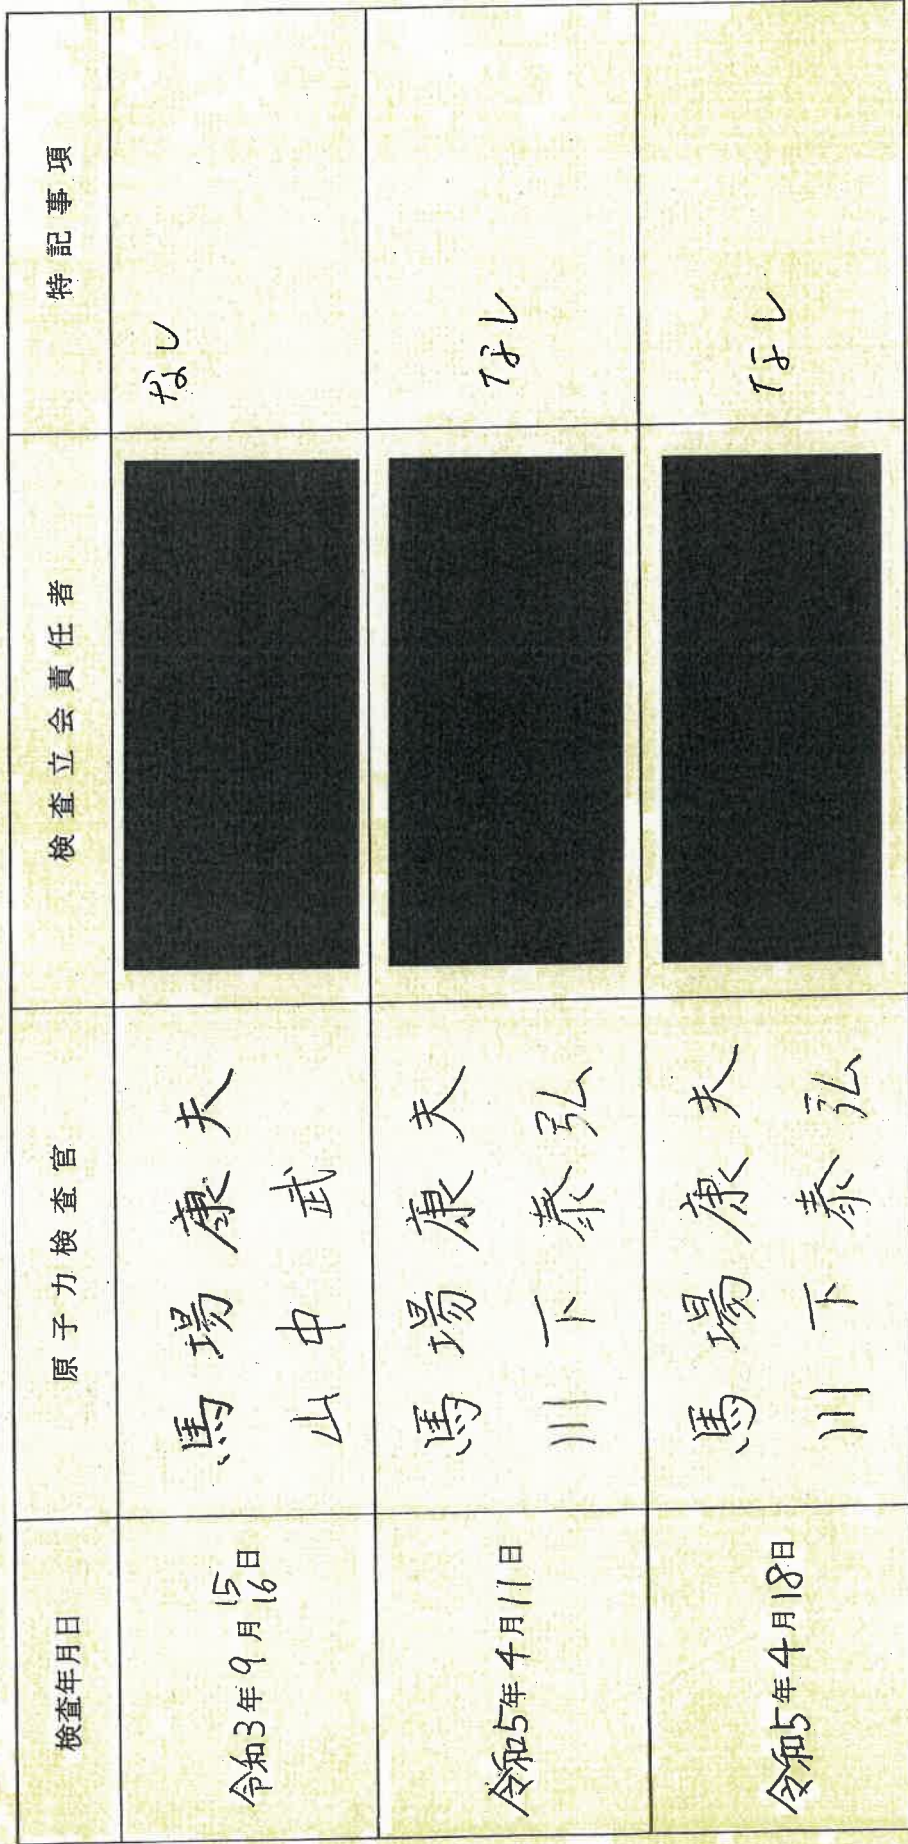 検査年月日 原子力検査官 検査立会責任者 特記事項
令和3年9月15 16日 馬場康夫 なし
山中武
令和5年4月11日 馬場康夫 なし
川下泰弘
令和5年4月18日 馬場康夫 なし
川下泰弘